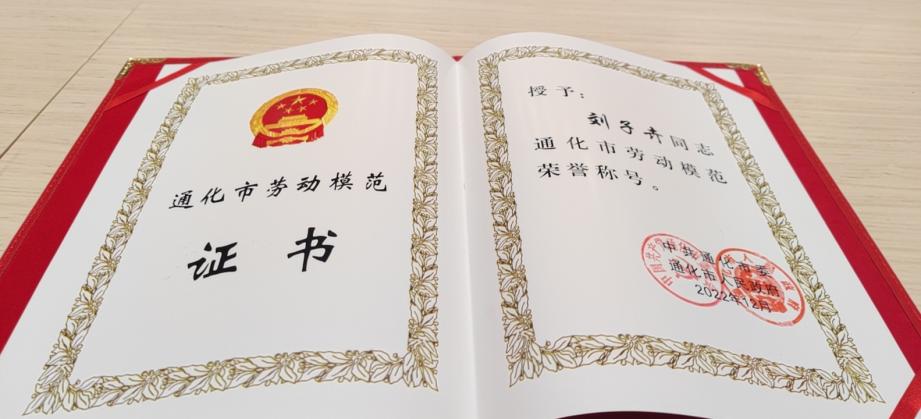 通化市劳动模范
证书
授予：
刘子卉同志
通化市劳动模范
荣誉称号。
中共通化市委
通化市人民政府
2022年12月